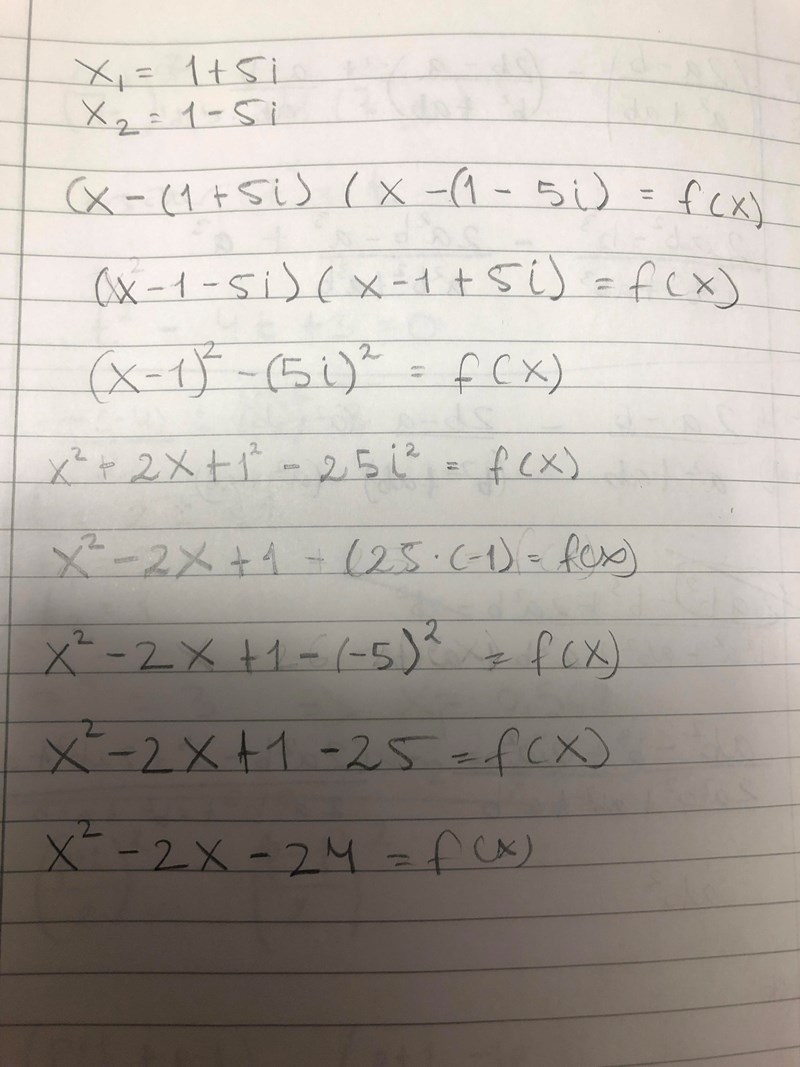 x₁ = 1+5i
x₂ = 1-5i
(x-(1+5i) (x-(1-5i) = f(x)
(x-1-5i)(x-1+5i) = f(x)
(x-1)² - (5i)² = f(x)
x² - 2x+1² - 25i² = f(x)
x² - 2x + 1 - (25·(-1) = f(x)
x² - 2x + 1 - (-5)² = f(x)
x² - 2x + 1 - 25 = f(x)
x² - 2x - 24 = f(x)